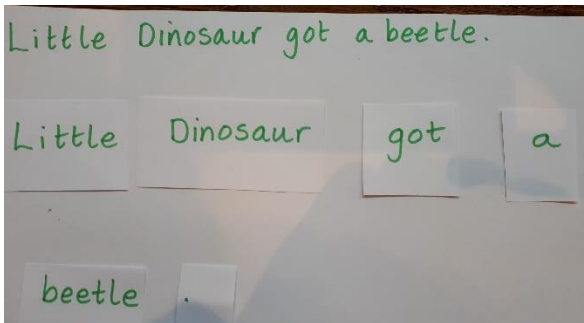 Little Dinosaur got a beetle.
Little Dinosaur got a
beetle .